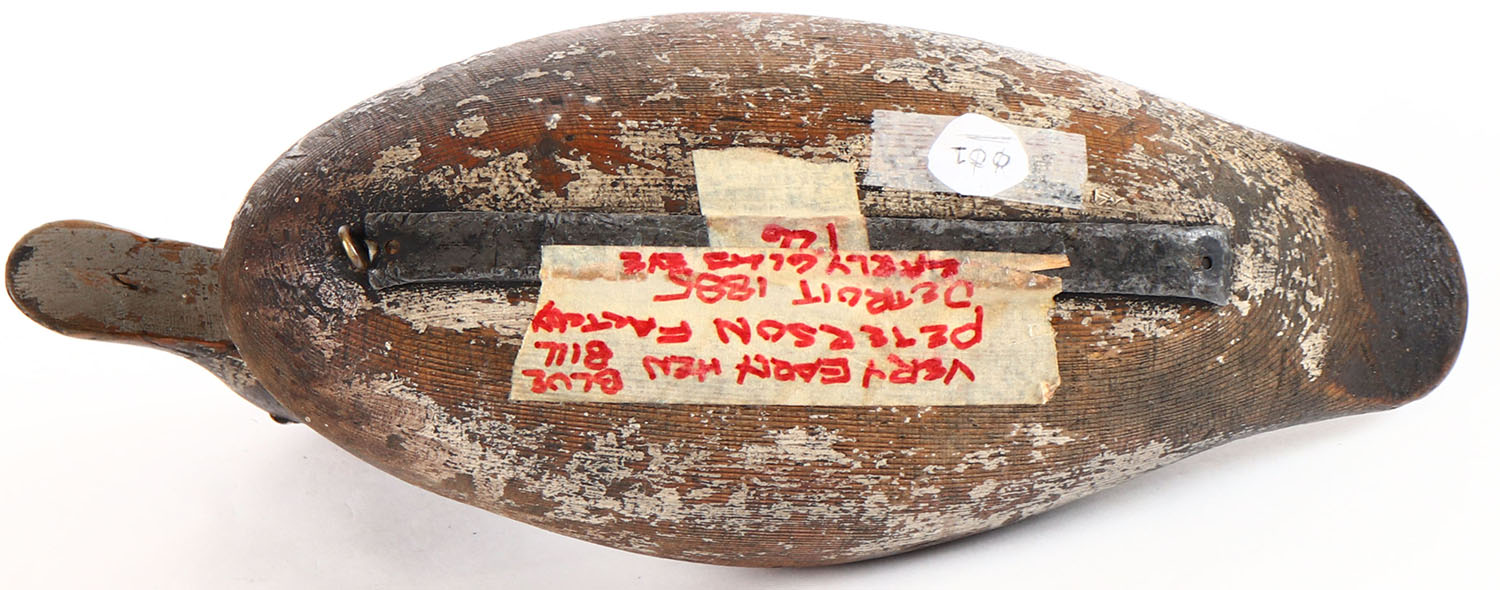 VERY EARLY HEN BLUE
BILL
PETERSON FACTORY
DETROIT 1885
EARLY GLASS EYE
001